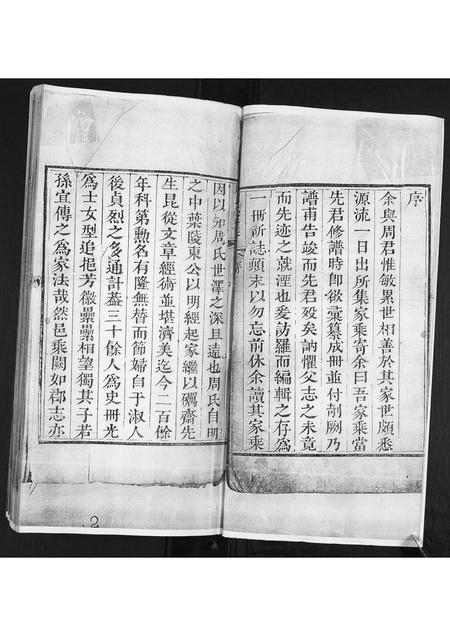 序
余與周君惟敏累世相善於其家世頗悉
源流一日出所集家乘寄余曰吾家乘當
先君修譜時卽欲彙纂成冊並付剞劂乃
譜甫告竣而先君殁矣訥懼父志之未竟
而先迹之就湮也爰訪羅而編輯之存爲
一冊祈誌顛末以勿忘前休余讀其家乘
因以知周氏世澤之深且遠也周氏自明
之中葉陵東公以明經起家繼以礪齋先
生昆從文章經術並堪濟美迄今二百餘
年科第勲名有隆無替而節婦自于淑人
後貞烈之多通計葢三十餘人爲史冊光
爲士女型追挹芳徽纍纍相望獨其子若
孫宜傳之爲家法哉然邑乘闕如郡志亦
2